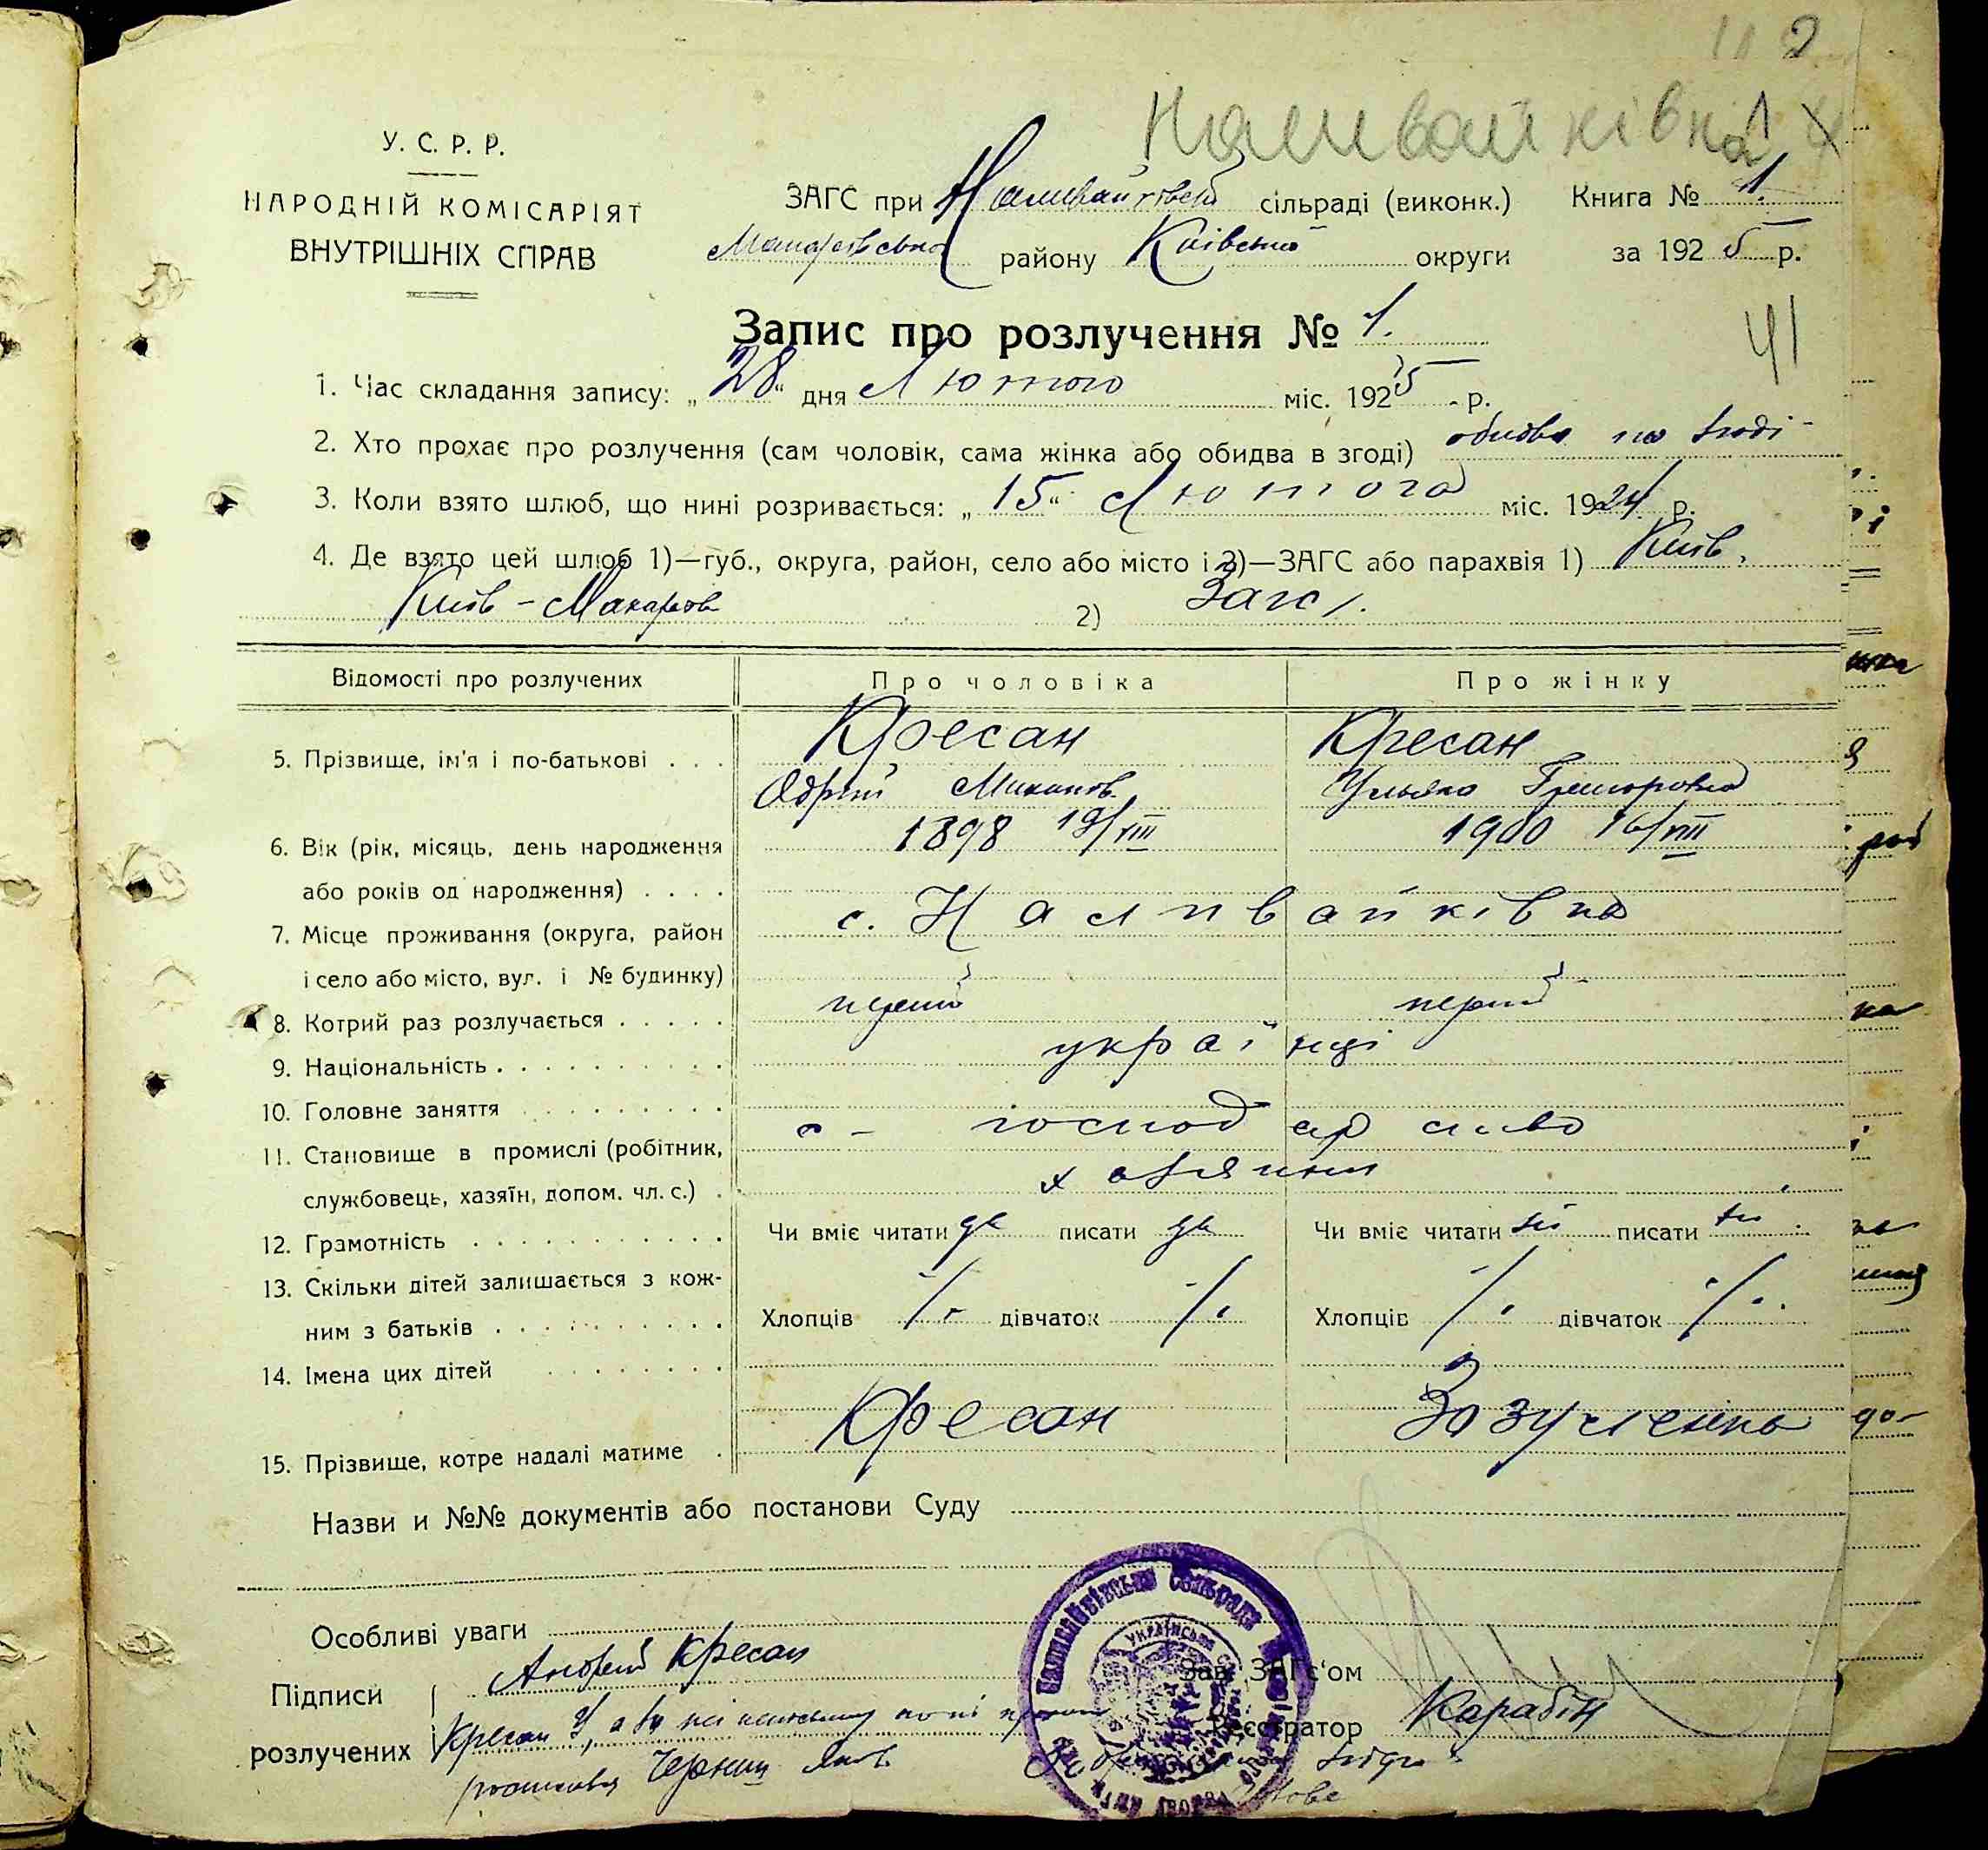 2
Наливайківка
У. С. Р. Р.
НАРОДНІЙ КОМІСАРІЯТ
ВНУТРІШНІХ СПРАВ
ЗАГС при Наливайківській сільраді (виконк.) Книга № 1.
Макарівського району Київської округи за 1925 р.
41
Запис про розлучення № 1.
1. Час складання запису: „28“ дня Лютого міс. 1925 р.
2. Хто прохає про розлучення (сам чоловік, сама жінка або обидва в згоді) обидва по згоді
3. Коли взято шлюб, що нині розривається: „15“ Лютого міс. 1924 р.
4. Де взято цей шлюб 1)—губ., округа, район, село або місто і 2)—ЗАГС або парахвія 1) Київ,
Київ - Макарів 2) Загс
Відомості про розлучених Про чоловіка Про жінку
5. Прізвище, ім'я і по-батькові . . . Кресан Кресан
Микитов. Ульяна Григоровна
6. Вік (рік, місяць, день народження 1898 19/VIII 1900 16/VIII
або років од народження) . . . .
7. Місце проживання (округа, район с. Наливайківка
і село або місто, вуг. і № будинку)
8. Котрий раз розлучається . . . . . перший перший
9. Національність . . . . . . . . . . українці
10. Головне заняття . . . . . . . . . с - господарство
11. Становище в промислі (робітник,
службовець, хазяїн, допом. чл. с.) . хазяини
12. Грамотність . . . . . . . . . . . Чи вміє читати да писати да Чи вміє читати ні писати ні
13. Скільки дітей залишається з кож-
ним з батьків . . . . . . . . . . Хлопців дівчаток Хлопців дівчаток
14. Імена цих дітей . . . . . . . .
15. Прізвище, котре надалі матиме . Кресан Зозуленко
Назви и №№ документів або постанови Суду
Особливі уваги
Підписи Андрей Кресан Зав. ЗАГС'ом
розлучених Кресан У, а за неі Реєстратор Карабін
росписався Черниш Яків